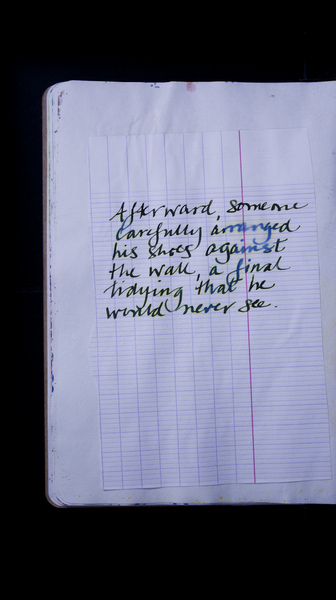 Afterward, someone
carefully arranged
his shoes against
the wall, a final
tidying that he
would never see.